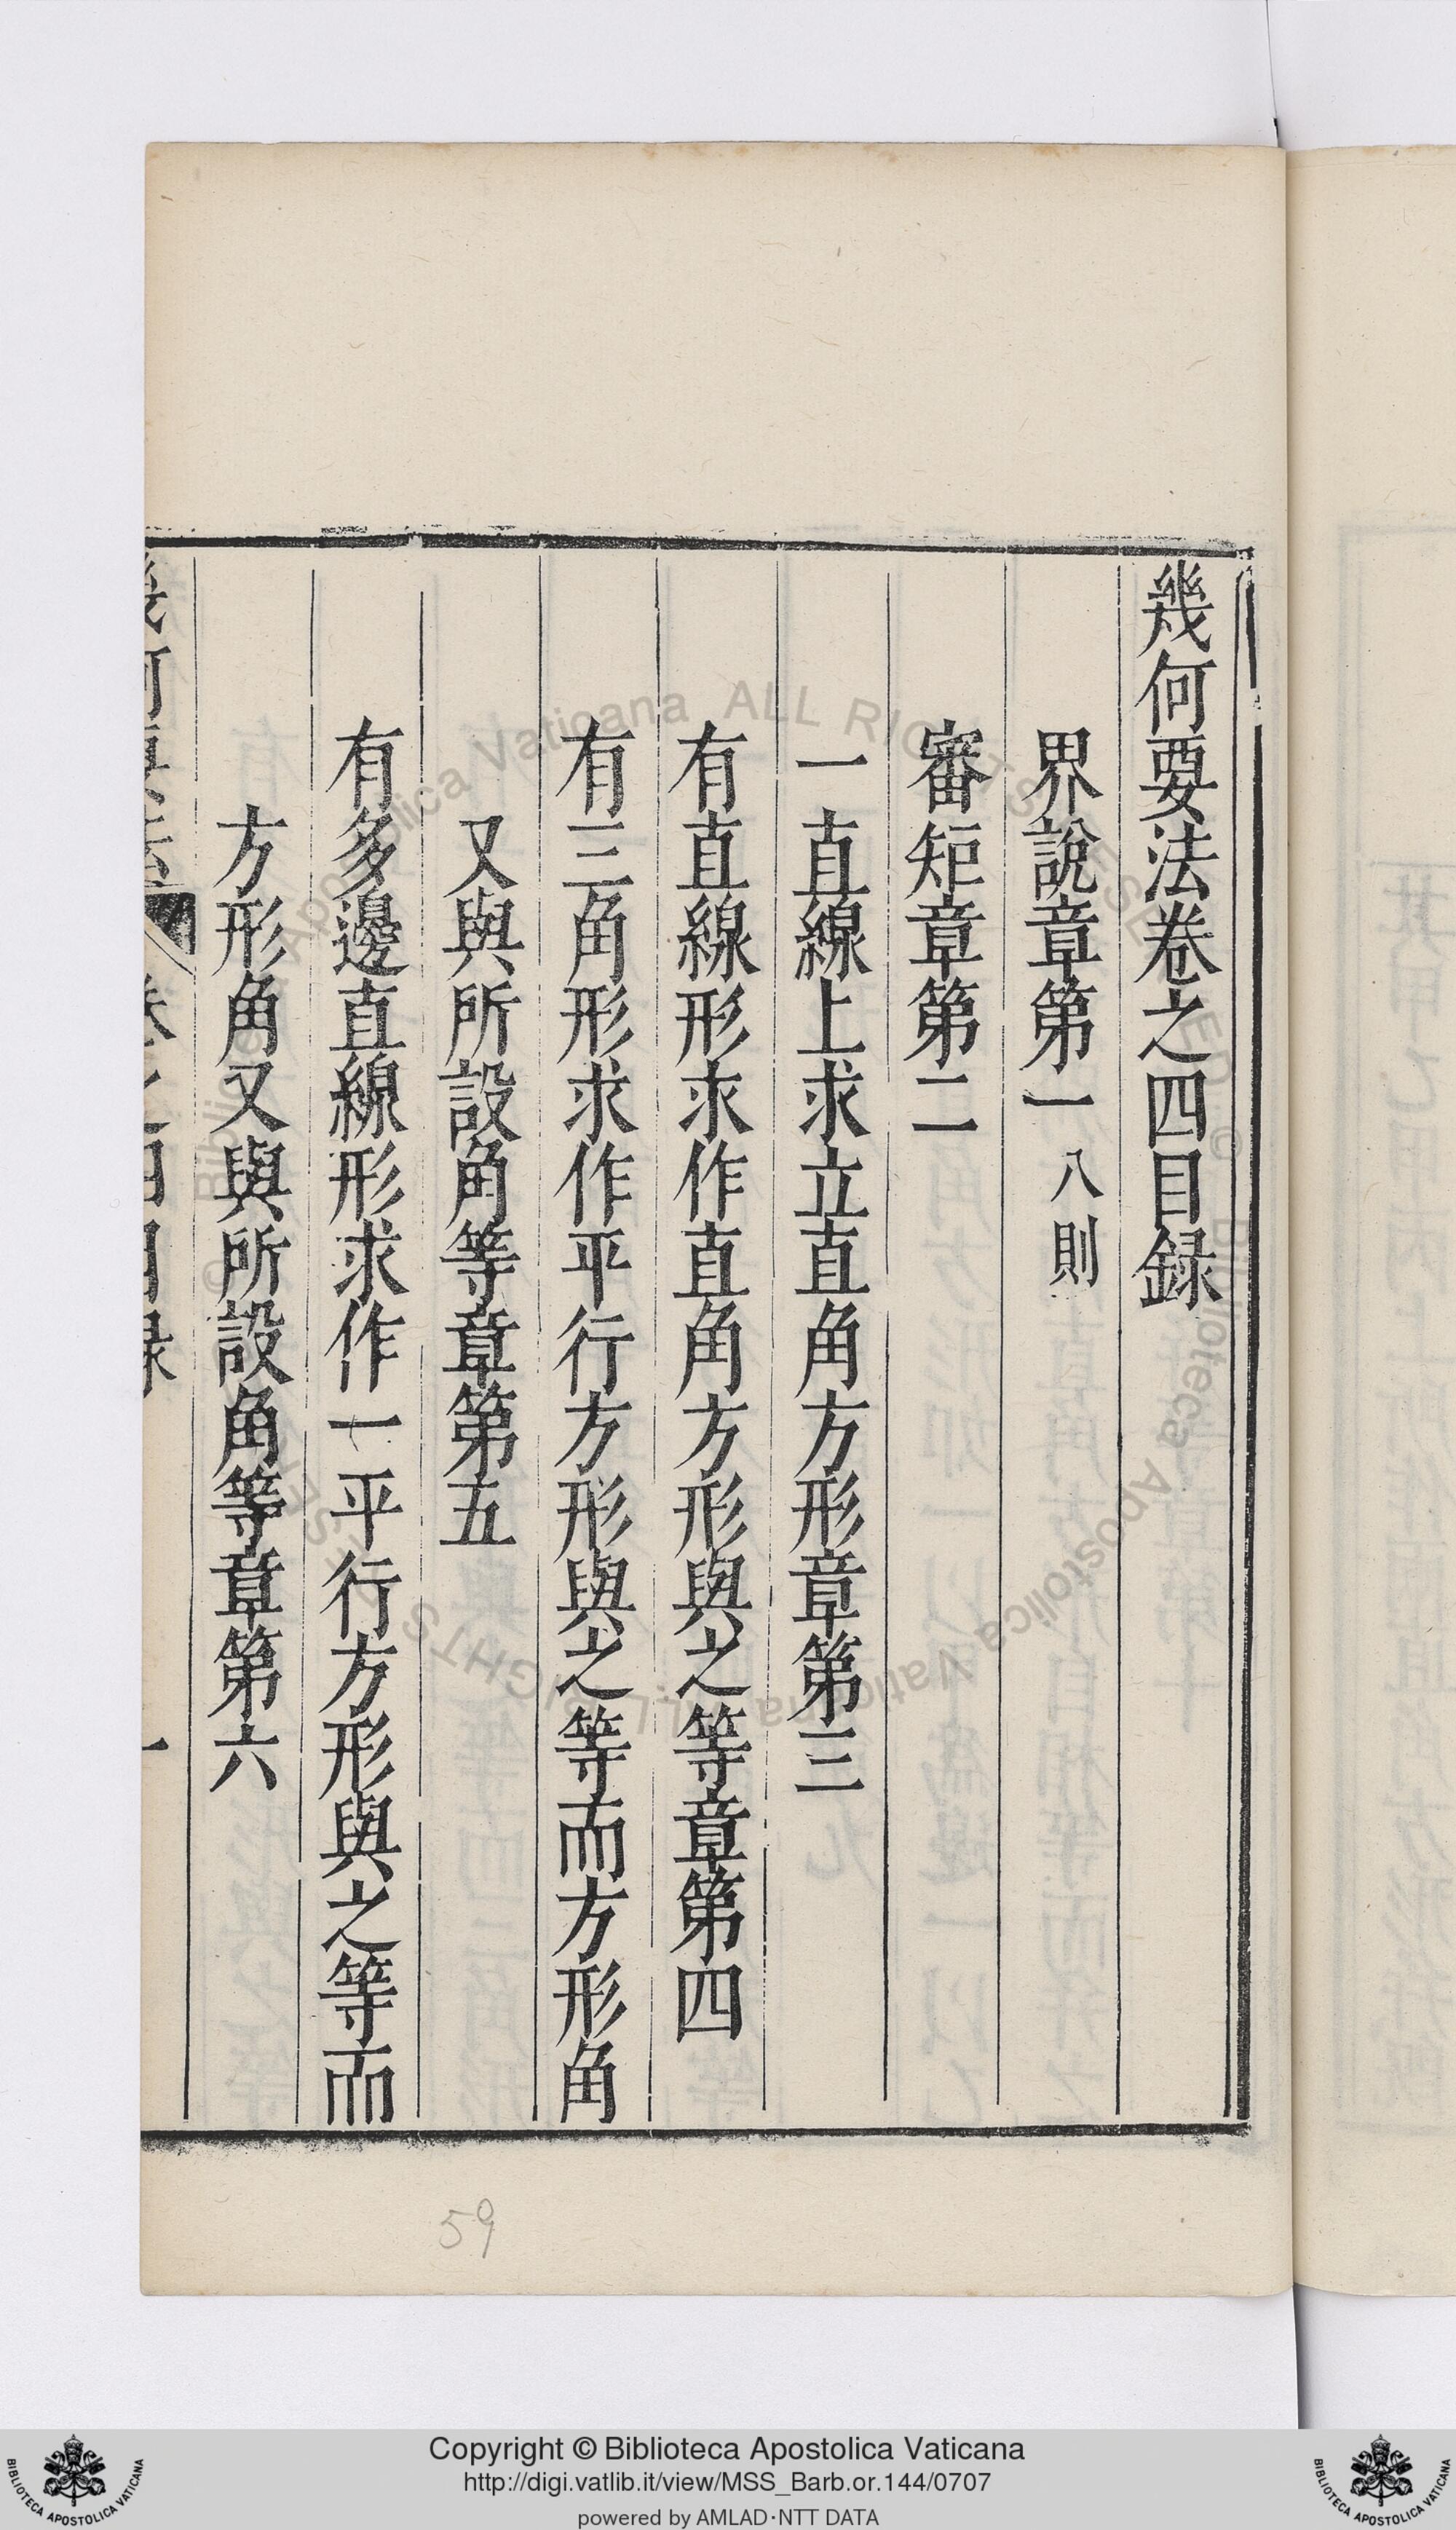 幾何要法卷之四目録
界說章第一 八則
審矩章第二
一直線上求立直角方形章第三
有直線形求作直角方形與之等章第四
有三角形求作平行方形與之等而方形角
又與所設角等章第五
有多邊直線形求作一平行方形與之等而
方形角又與所設角等章第六
59
Copyright © Biblioteca Apostolica Vaticana
http://digi.vatlib.it/view/MSS_Barb.or.144/0707
powered by AMLAD·NTT DATA
BIBLIOTECA APOSTOLICA VATICANA
BIBLIOTECA APOSTOLICA VATICANA